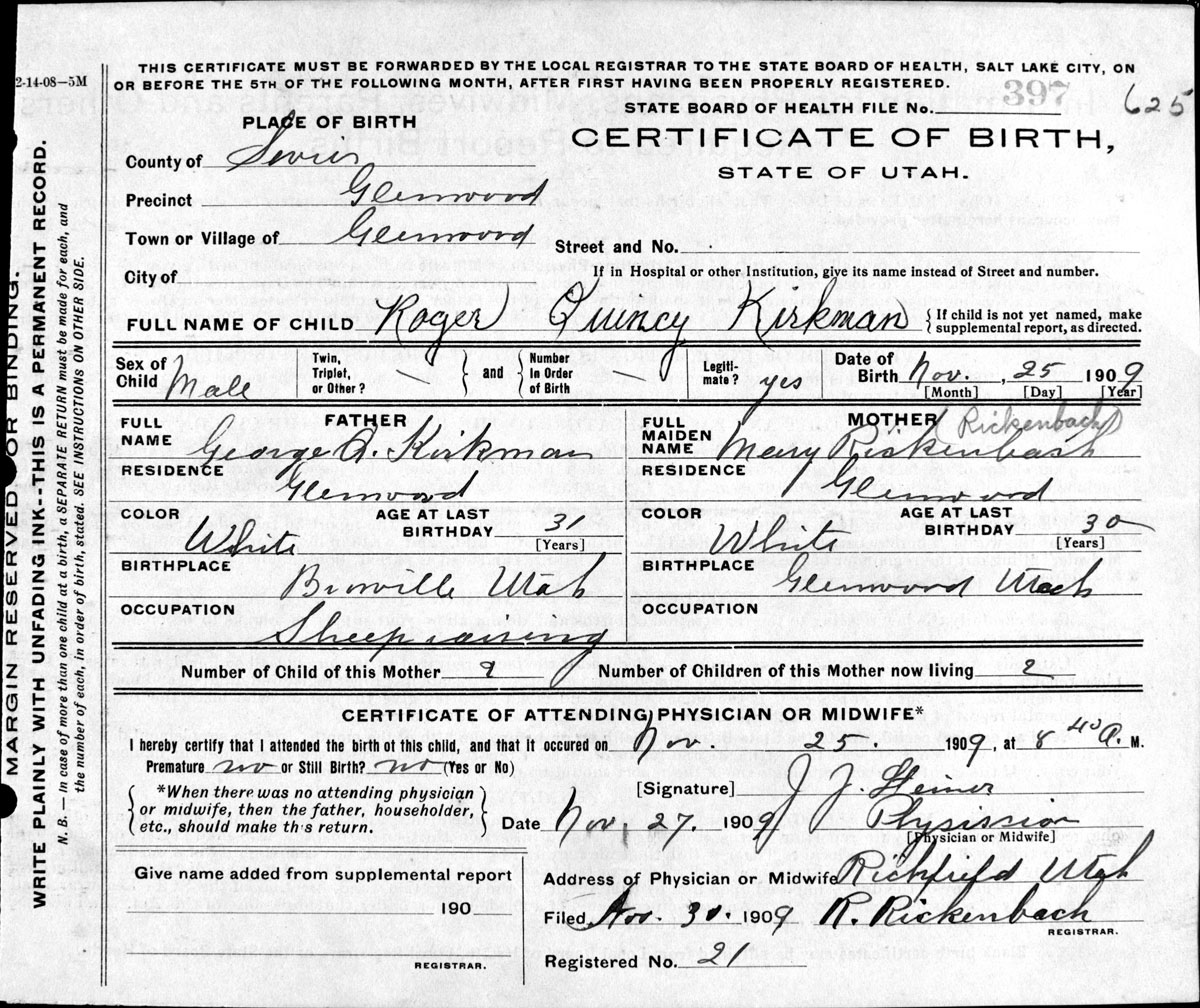 2-14-08—5M
THIS CERTIFICATE MUST BE FORWARDED BY THE LOCAL REGISTRAR TO THE STATE BOARD OF HEALTH, SALT LAKE CITY, ON
OR BEFORE THE 5TH OF THE FOLLOWING MONTH, AFTER FIRST HAVING BEEN PROPERLY REGISTERED.
STATE BOARD OF HEALTH FILE No. 397 625
PLACE OF BIRTH
CERTIFICATE OF BIRTH,
STATE OF UTAH.
County of Sevier
Precinct Glenwood
Town or Village of Glenwood
Street and No.
City of
If in Hospital or other Institution, give its name instead of Street and number.
FULL NAME OF CHILD Roger Quincy Kirkman { If child is not yet named, make
supplemental report, as directed.
Sex of Child Male Twin, Triplet, or Other? — } and { Number in Order of Birth — Legiti-mate? yes Date of Birth Nov. , 25 1909
[Month] [Day] [Year]
FATHER
FULL NAME George A. Kirkman
RESIDENCE
Glenwood
COLOR White AGE AT LAST BIRTHDAY 31 [Years]
BIRTHPLACE
Utah
OCCUPATION
Sheep raising
MOTHER Rickenbach
FULL MAIDEN NAME Mary Rickenbash
RESIDENCE
Glenwood
COLOR White AGE AT LAST BIRTHDAY 30 [Years]
BIRTHPLACE
Glenwood Utah
OCCUPATION
Number of Child of this Mother 2 Number of Children of this Mother now living 2
CERTIFICATE OF ATTENDING PHYSICIAN OR MIDWIFE*
I hereby certify that I attended the birth of this child, and that it occured on Nov. 25. 1909, at 8 40 A. M.
Premature no or Still Birth? no (Yes or No)
{ *When there was no attending physician
or midwife, then the father, householder,
etc., should make this return. }
[Signature] J. J. Steiner
Date Nov. 27. 1909 Physission
[Physician or Midwife]
Give name added from supplemental report
190
REGISTRAR.
Address of Physician or Midwife Richfield Utah
Filed Nov. 30. 1909 R. Rickenbach
REGISTRAR.
Registered No. 21
MARGIN RESERVED FOR BINDING.
WRITE PLAINLY WITH UNFADING INK--THIS IS A PERMANENT RECORD.
N. B.— In case of more than one child at a birth, a SEPARATE RETURN must be made for each, and
the number of each, in order of birth, stated. SEE INSTRUCTIONS ON OTHER SIDE.